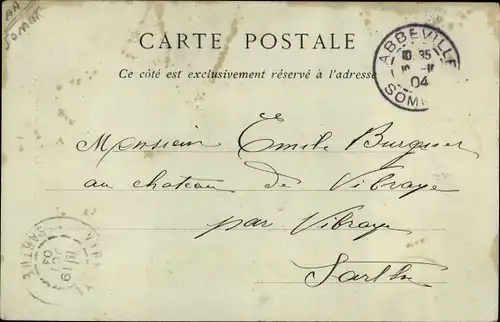 CARTE POSTALE
Ce côté est exclusivement réservé à l'adresse
ABBEVILLE
10 35
04
SOMME
Monsieur Emile Burguer
au chateau de Vibraye
par Vibraye
Sarthe
SARTHE
04